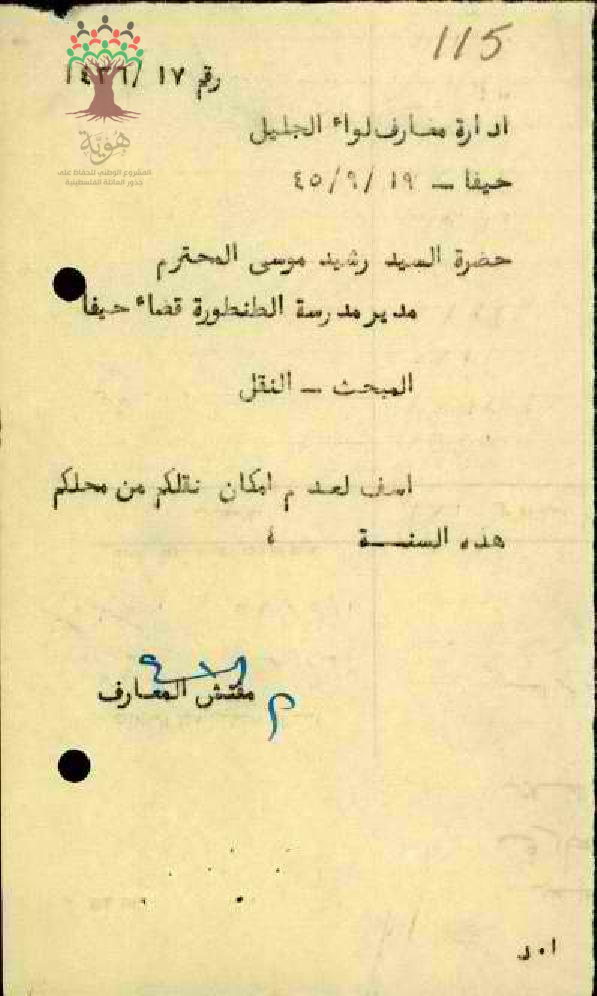 115
رقم ١٧ /١٤٣٦
هوية
المشروع الوطني للحفاظ على
جذور العائلة الفلسطينية
ادارة معارف لواء الجليل
حيفا ــ ١٩ /٩ /٤٥
حضرة السيد رشيد موسى المحترم
مدير مدرسة الطنطورة قضاء حيفا
المبحث ــ النقل
اسف لعدم امكان نقلكم من محلكم
هذه السنــة ٤
مفتش المعارف